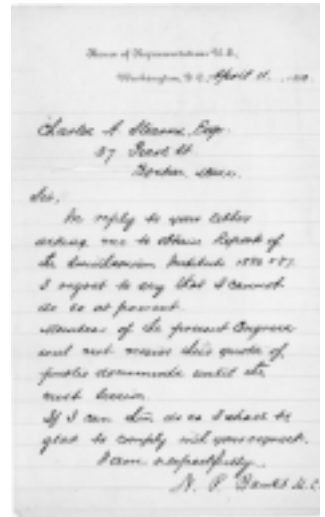 House of Representatives U.S.,
Washington, D.C., April 11, 18
Charles A. Stearns, Esqr.
57 Pearl St.
Boston, Mass.
Sir,
In reply to your letter
asking me to obtain Report of
the Smithsonian Institute 1886 & 87.
I regret to say that I cannot
do so at present.
Members of the present Congress
will not receive their quota of
public documents until the
next session.
If I can then do so I shall be
glad to comply with your request.
I am respectfully
N. P. Banks M.C.